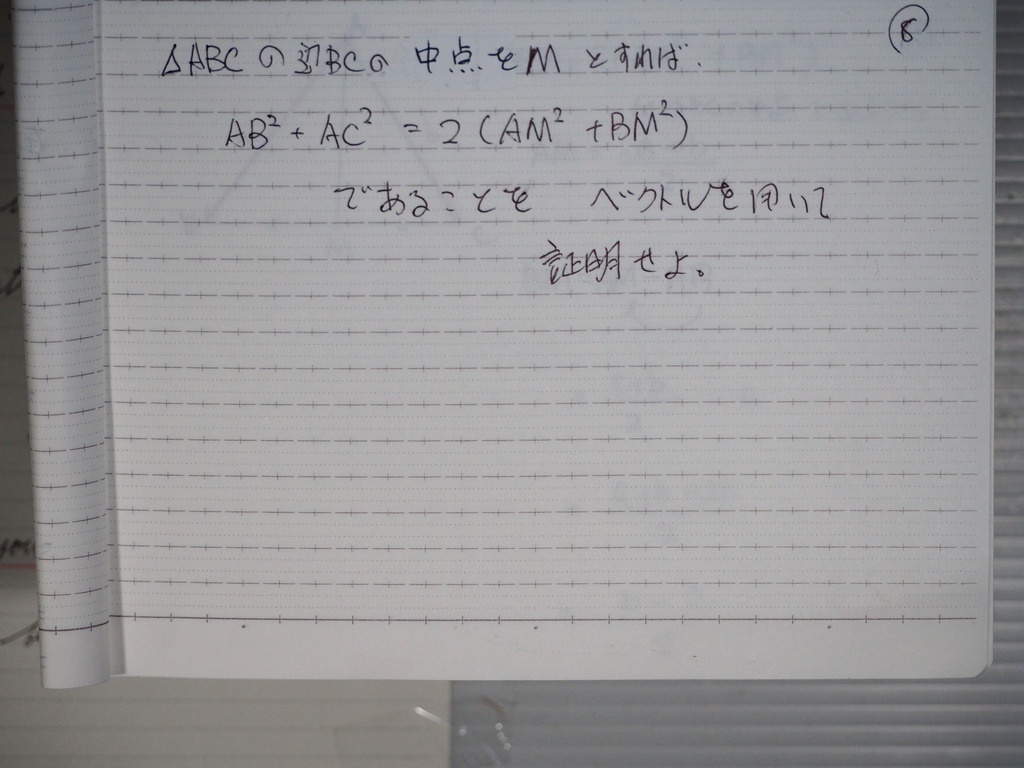 ⑧
△ABCの辺BCの中点をMとすれば.
AB² + AC² = 2(AM² + BM²)
であることを ベクトルを用いて
証明せよ。